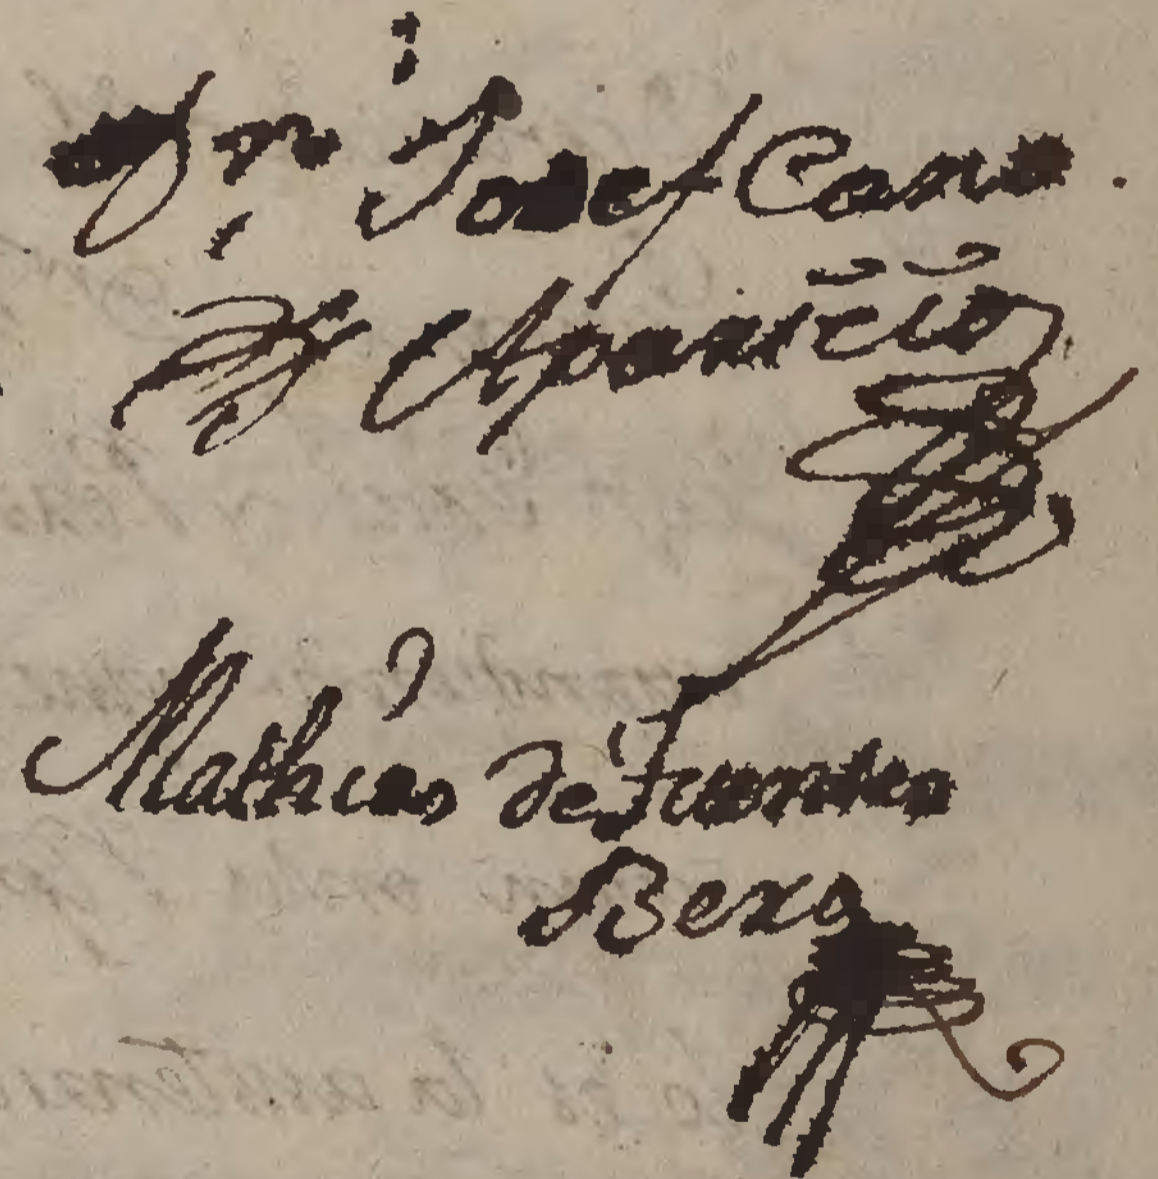 Josef Cano
y Aparicio
Mathias de Fuentes
Bexo